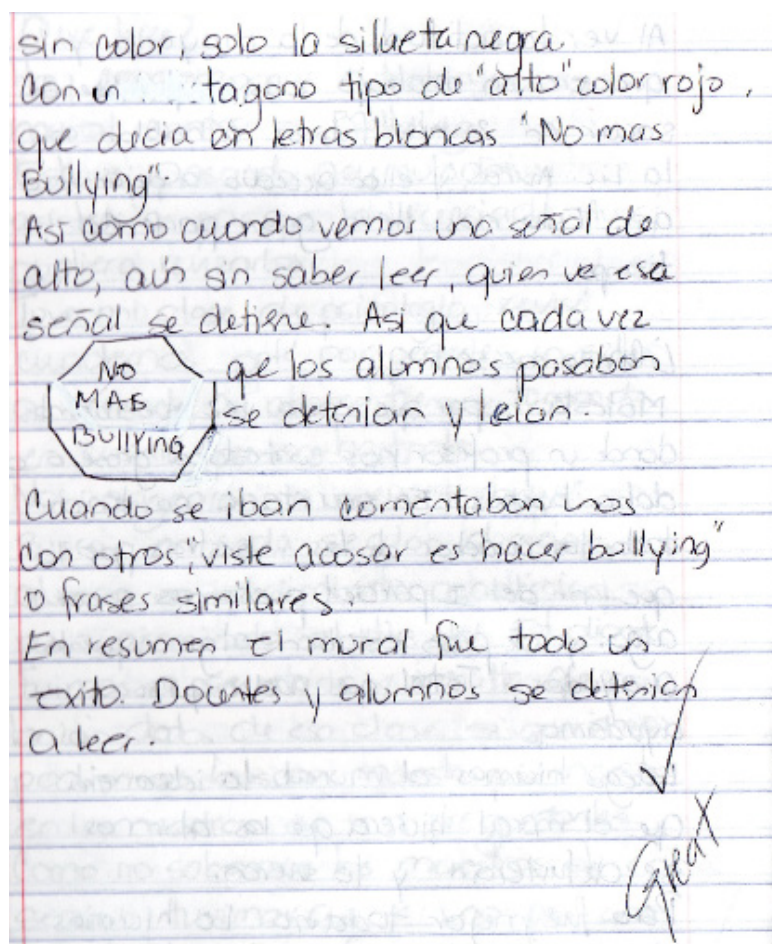 sin color, solo la silueta negra
con un tagono tipo de "alto" color rojo,
que decia en letras blancas "No mas
Bullying".
Asi como cuando vemos una señal de
alto, aun sin saber leer, quien ve esa
señal se detiene. Asi que cada vez
que los alumnos pasaban
se detenian y leian.
NO
MAS
BUllYING
Cuando se iban comentaban unos
con otros, "viste acosar es hacer bullying"
o frases similares.
En resumen el mural fue todo un
exito. Docentes y alumnos se detenian
a leer.
Great